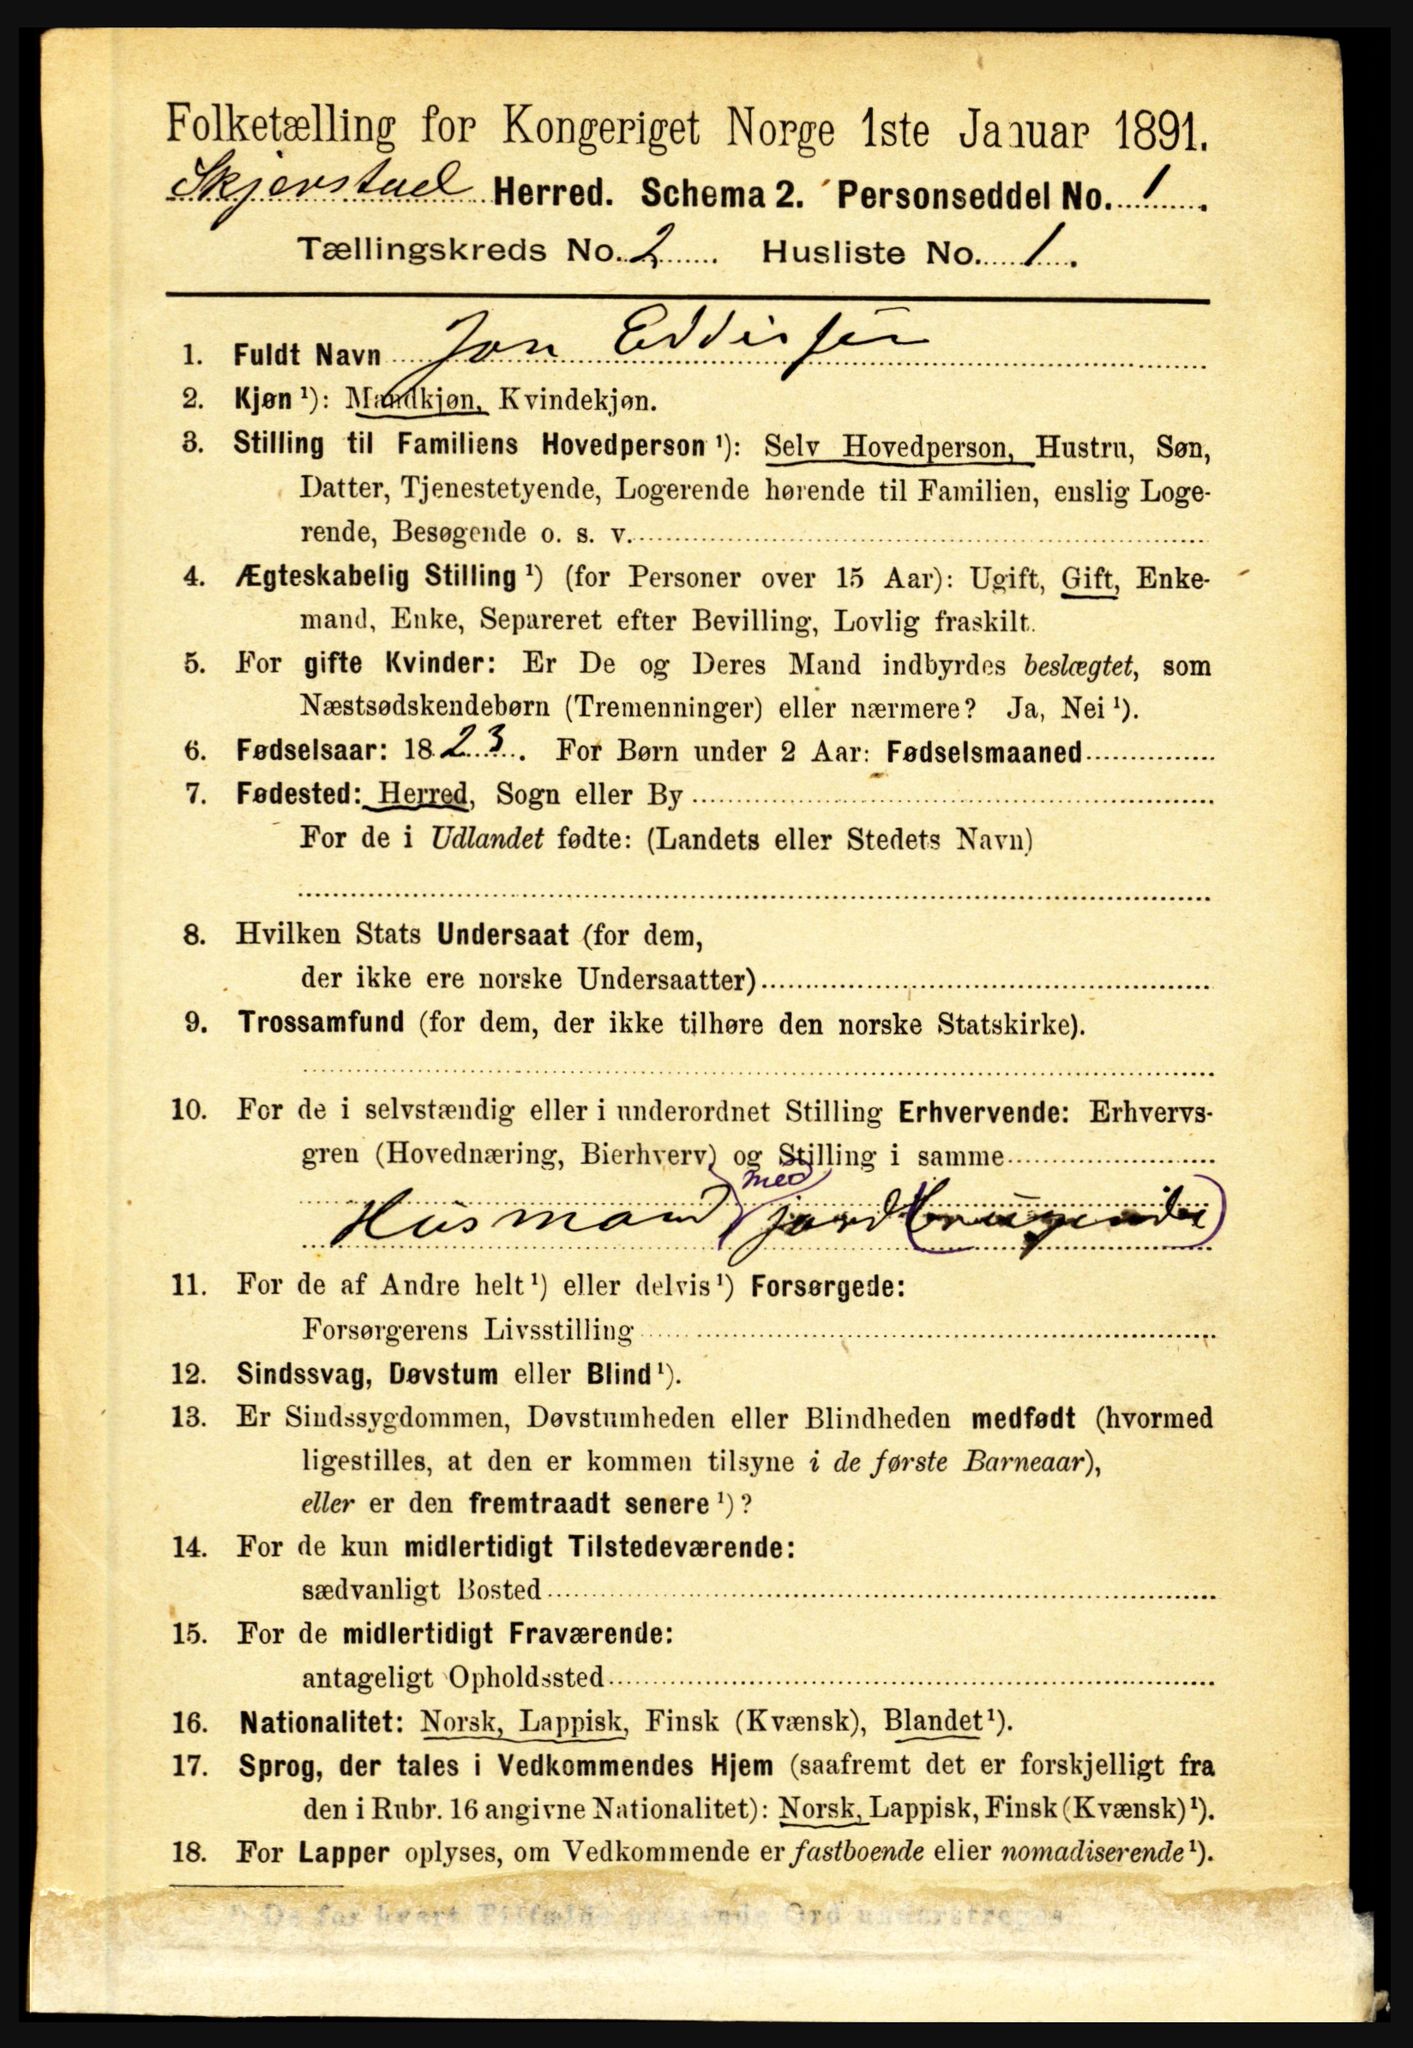 Folketælling for Kongeriget Norge 1ste Januar 1891.
Skjerstad Herred. Schema 2. Personseddel No. 1.
Tællingskreds No. 2. Husliste No. 1.
1. Fuldt Navn Jon Eddisen
2. Kjøn ¹): Mandkjøn, Kvindekjøn.
3. Stilling til Familiens Hovedperson ¹): Selv Hovedperson, Hustru, Søn,
Datter, Tjenestetyende, Logerende hørende til Familien, enslig Loge-
rende, Besøgende o. s. v.
4. Ægteskabelig Stilling ¹) (for Personer over 15 Aar): Ugift, Gift, Enke-
mand, Enke, Separeret efter Bevilling, Lovlig fraskilt.
5. For gifte Kvinder: Er De og Deres Mand indbyrdes beslægtet, som
Næstsødskendebørn (Tremenninger) eller nærmere? Ja, Nei ¹).
6. Fødselsaar: 1823. For Børn under 2 Aar: Fødselsmaaned
7. Fødested: Herred, Sogn eller By
For de i Udlandet fødte: (Landets eller Stedets Navn)
8. Hvilken Stats Undersaat (for dem,
der ikke ere norske Undersaatter)
9. Trossamfund (for dem, der ikke tilhøre den norske Statskirke).
10. For de i selvstændig eller i underordnet Stilling Erhvervende: Erhvervs-
gren (Hovednæring, Bierhverv) og Stilling i samme
med
Husmand jord(brugende)
11. For de af Andre helt ¹) eller delvis ¹) Forsørgede:
Forsørgerens Livsstilling
12. Sindssvag, Døvstum eller Blind ¹).
13. Er Sindssygdommen, Døvstumheden eller Blindheden medfødt (hvormed
ligestilles, at den er kommen tilsyne i de første Barneaar),
eller er den fremtraadt senere ¹)?
14. For de kun midlertidigt Tilstedeværende:
sædvanligt Bosted
15. For de midlertidigt Fraværende:
antageligt Opholdssted
16. Nationalitet: Norsk, Lappisk, Finsk (Kvænsk), Blandet ¹).
17. Sprog, der tales i Vedkommendes Hjem (saafremt det er forskjelligt fra
den i Rubr. 16 angivne Nationalitet): Norsk, Lappisk, Finsk (Kvænsk) ¹).
18. For Lapper oplyses, om Vedkommende er fastboende eller nomadiserende ¹).
¹) De for hvert Tilfælde passende Ord understreges.